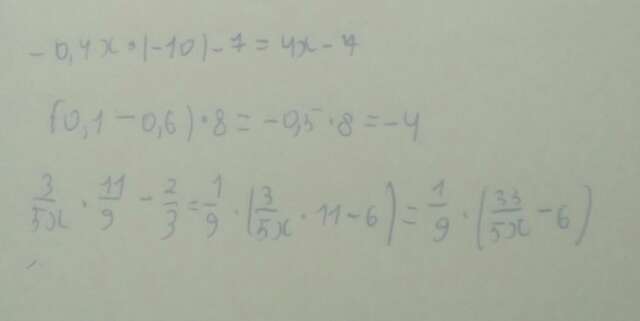 -0,4x·(-10)-7=4x-7
(0,1-0,6)·8=-0,5·8=-4
3/5x · 11/9 - 2/3 = 1/9 · (3/5x · 11-6) = 1/9 · (33/5x - 6)